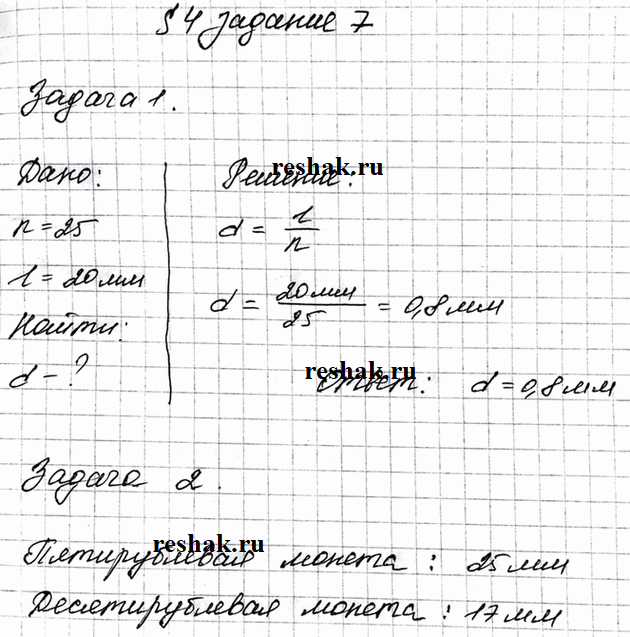 § 4 задание 7
Задача 1.
Дано:
n = 25
l = 20 мм
Найти:
d - ?
reshak.ru
Решение:
d = l/n
d = 20 мм/25 = 0,8 мм
reshak.ru
Ответ: d = 0,8 мм
Задача 2.
reshak.ru
Пятирублевая монета : 25 мм
Десятирублевая монета : 17 мм